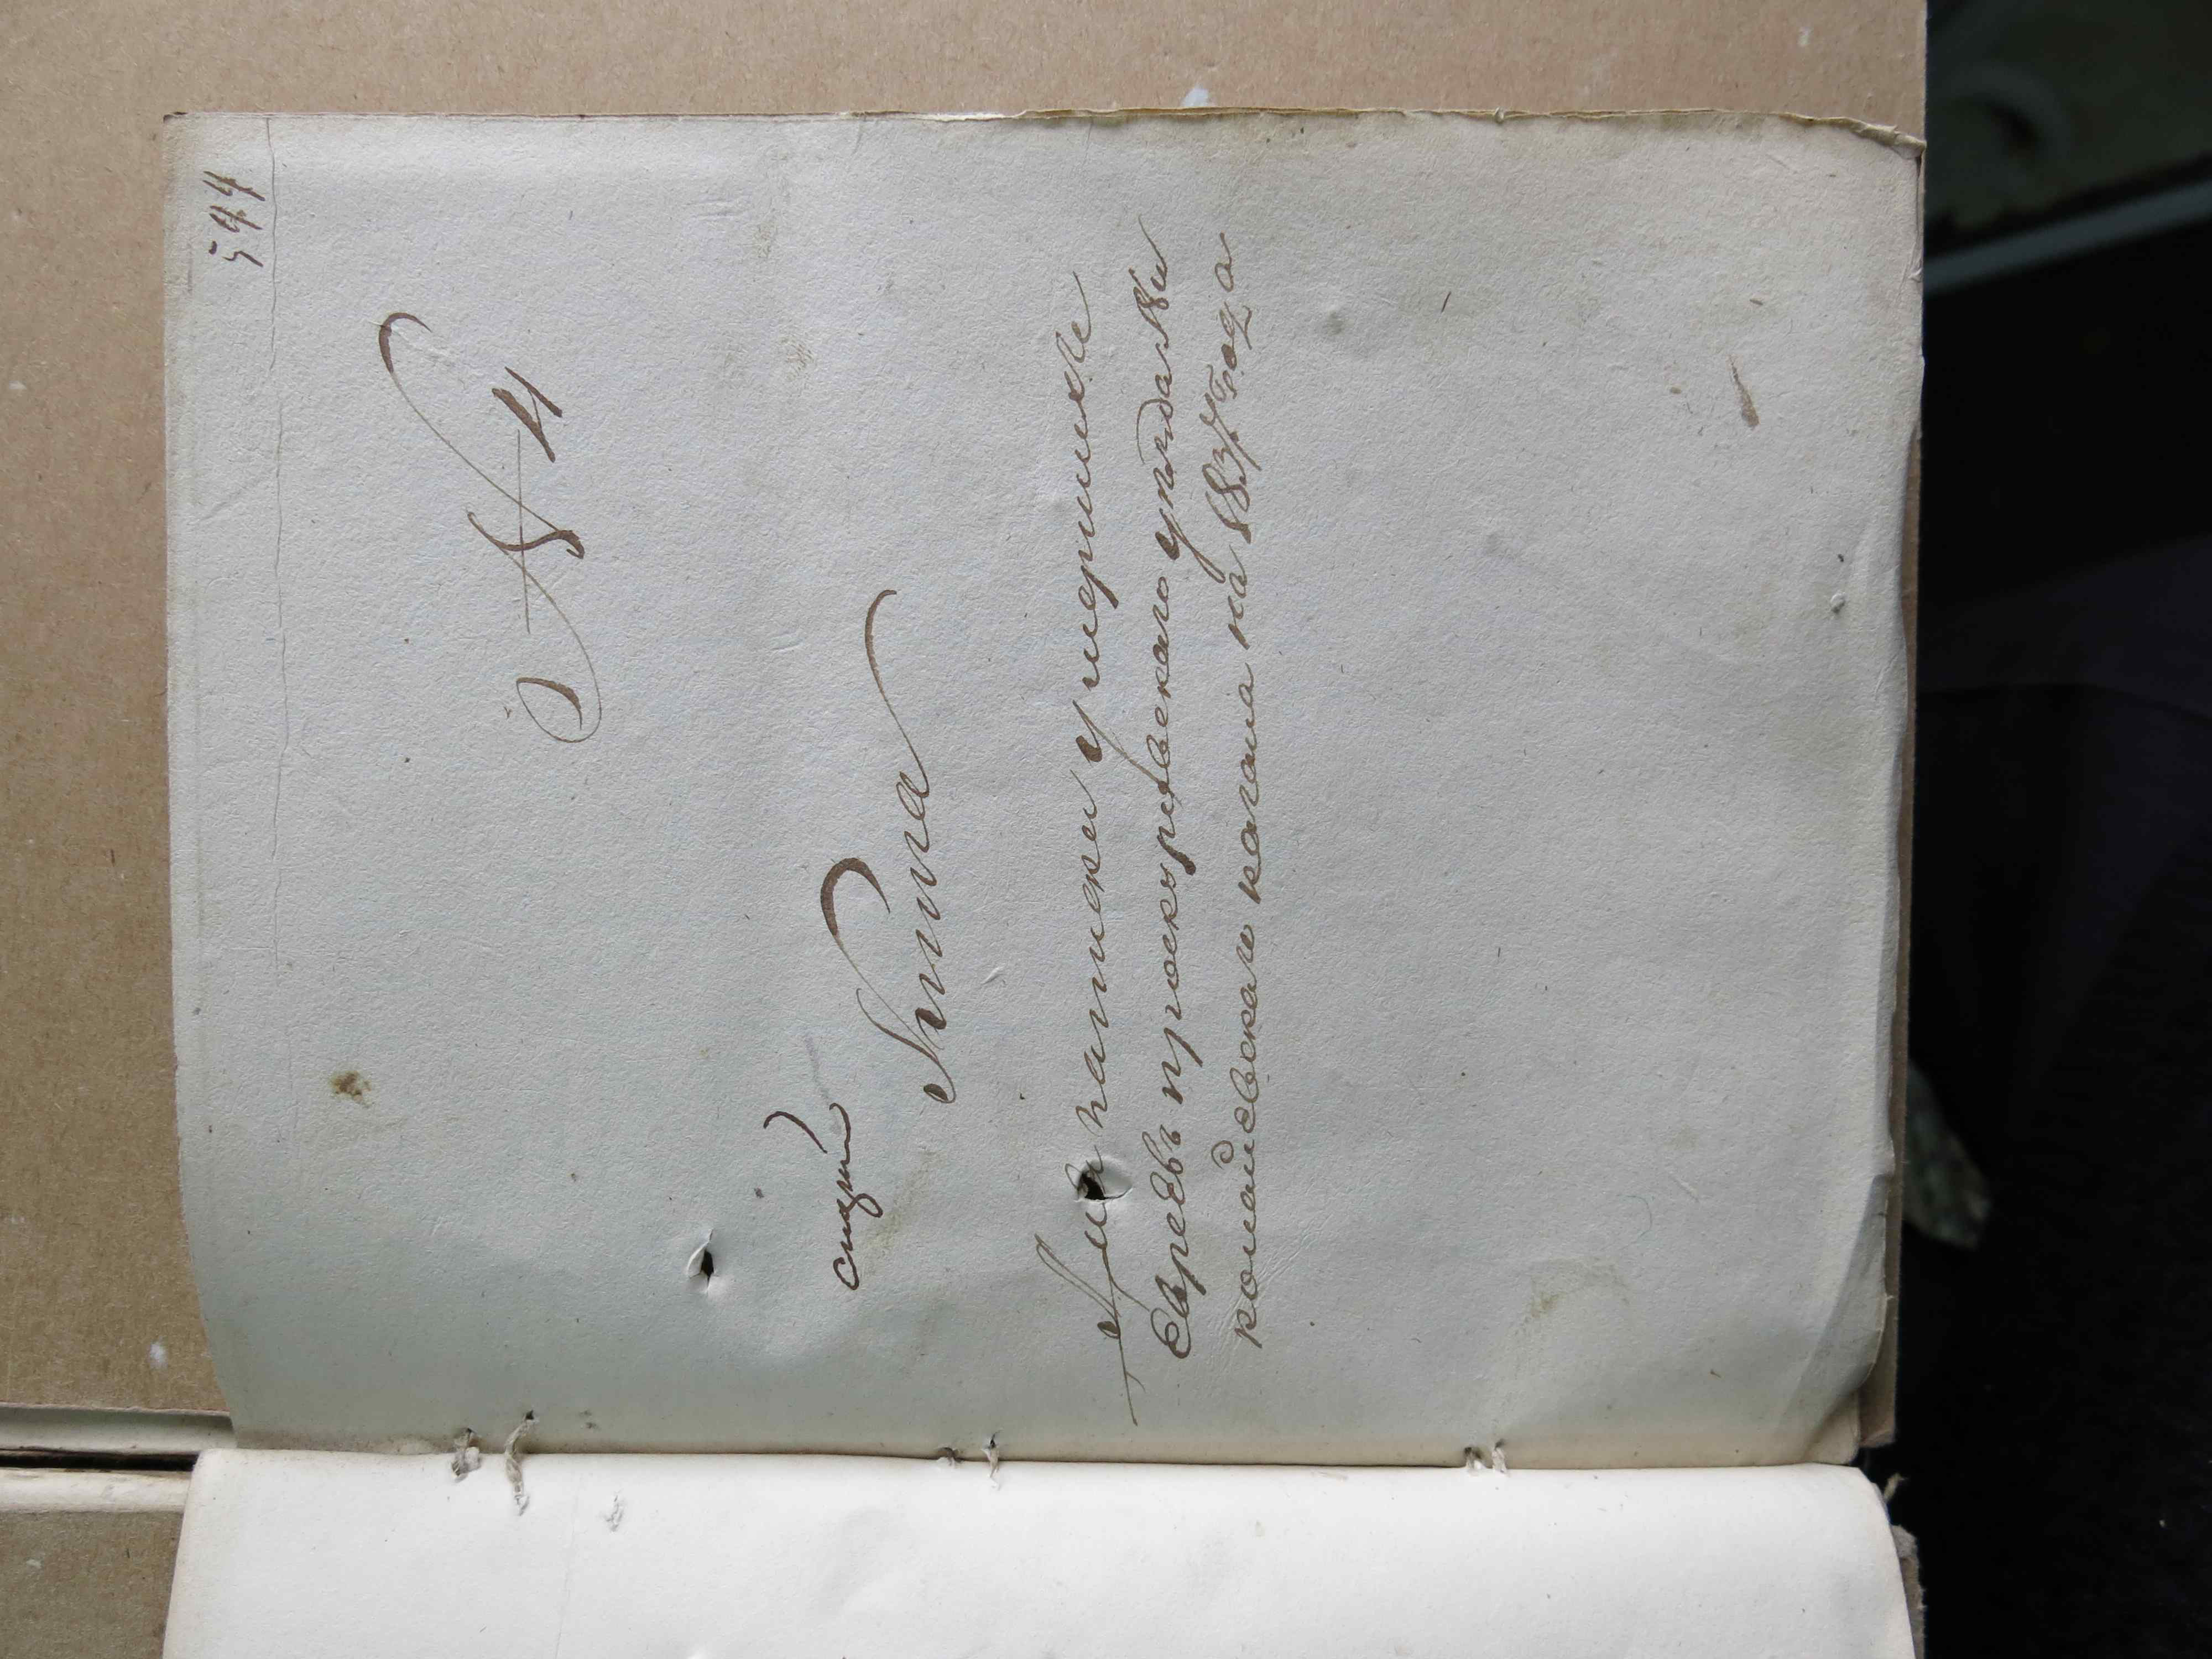 544
№ 4
Книга
Для записки умершихъ
Евреевъ проскуровскаго уезда Ни
колаевскаго кагала на 1837 Года